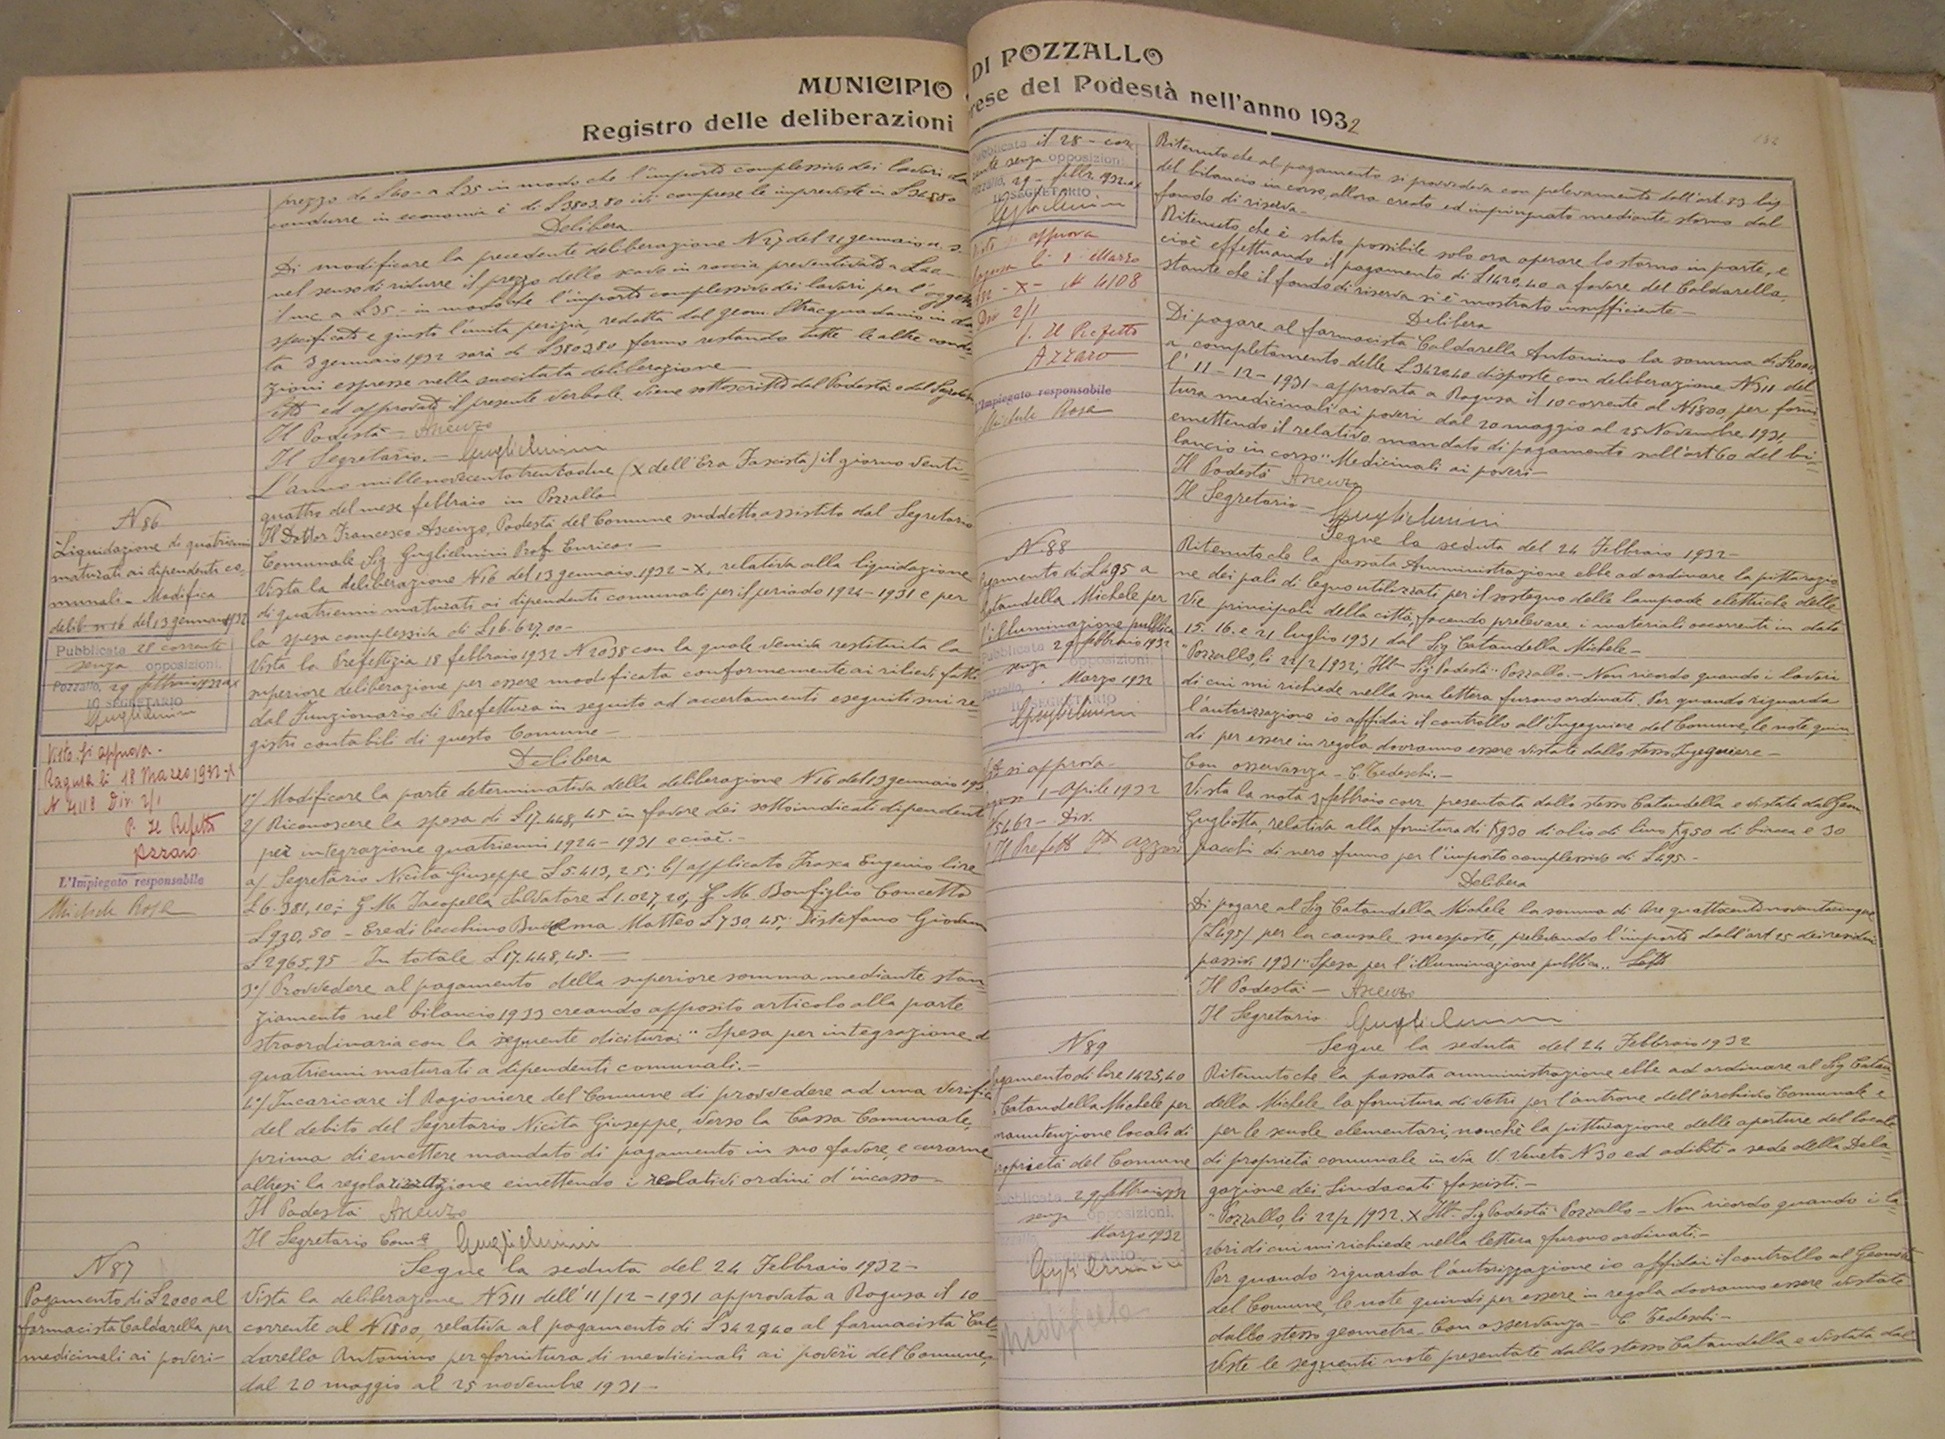 MUNICIPIO DI POZZALLO
Registro delle deliberazioni prese del Podestà nell'anno 1932
prezzo da L40 - a L35 in modo che l'importo complessivo dei lavori da
condurre in economia è di L3803,80 ivi comprese le impreviste in L345,80
Delibera
Di modificare la precedente deliberazione N 27 del 21 gennaio u. s.
nel senso di ridurre il prezzo dello scavo in roccia preventivato a L40 -
il mc. a L35 - in modo che l'importo complessivo dei lavori per l'oggetto
specificato e giusto l'unita perizia, redatta dal geom. Stracquadanio in da
ta 3 gennaio 1932 sarà di L3803,80 fermo restando tutte le altre condi-
zioni espresse nella succitata deliberazione -
Letto ed approvato il presente verbale viene sottoscritto dal Podestà e dal Segretario
Il Podestà -
Il Segretario. - Guglielmini
L'anno millenovecentotrentadue (X dell'Era Fascista) il giorno venti-
quattro del mese febbraio in Pozzallo
N 86
Liquidazione di quatrienni
maturati ai dipendenti co-
munali - Modifica
delib. n 16 del 13 gennaio 1932
Pubblicata 28 corrente
senza opposizioni.
Pozzallo, 29 febbraio 1932 a X
IL SEGRETARIO
Guglielmini
Visto si approva -
Ragusa li 18 Marzo 1932 - X
N 4118 Div. 2/1
P. Il Prefetto
Azzaro
L'Impiegato responsabile
Michele Rosa
Il Dottor Francesco Ascenzo, Podestà del Comune suddetto, assistito dal Segretario
Comunale Sig. Guglielmini Prof. Enrico. -
Vista la deliberazione N16 del 13 gennaio 1932 - X, relativa alla liquidazione
di quatrienni maturati ai dipendenti comunali per il periodo 1924 - 1931 e per
la spesa complessiva di L16.627,00 -
Vista la Prefettizia 18 febbraio 1932 N 2038 con la quale veniva restituita la
superiore deliberazione per essere modificata conformemente ai rilievi fatti
dal Funzionario di Prefettura in seguito ad accertamenti eseguiti sui re-
gistri contabili di questo Comune -
Delibera
1°/ Modificare la parte determinativa della deliberazione N16 del 13 gennaio 1932
2/ Riconoscere la spesa di L17.448,45 in favore dei sottoindicati dipendenti
per integrazione quatrienni 1924 - 1931 e cioè. -
a/ Segretario Nicita Giuseppe L5.413,25; b/ applicato Frasca Eugenio lire
L6.381,10; G. M. Iacopella Salvatore L1.027,20; G. M. Bonfiglio Concetto
L930,50 - Eredi becchino Matteo L730,45; Distefano Giovanni
L2965,95 - In totale L17.448,45. -
3°/ Provvedere al pagamento della superiore somma mediante stan-
ziamento nel bilancio 1933 creando apposito articolo alla parte
straordinaria con la seguente dicitura: " Spesa per integrazione di
quatrienni maturati a dipendenti comunali. -
4°/ Incaricare il Ragioniere del Comune di provvedere ad una verifica
del debito del Segretario Nicita Giuseppe, verso la Cassa Comunale,
prima di emettere mandato di pagamento in suo favore, e curarne
altresì la regolarizzazione emettendo i relativi ordini d'incasso -
Il Podestà
Il Segretario Com.le Guglielmini
Segue la seduta del 24 Febbraio 1932 -
N 87
Pagamento di L2000 al
farmacista Caldarella per
medicinali ai poveri -
Vista la deliberazione N311 dell'11/12 - 1931 approvata a Ragusa il 10
corrente al N 1800, relativa al pagamento di L3429,40 al farmacista Cal-
darella Antonino per fornitura di medicinali ai poveri del Comune,
dal 20 maggio al 25 novembre 1931 -
Pubblicata il 28 - cor
rente senza opposizioni.
Pozzallo, 29 - febbr. 1932 a X
IL SEGRETARIO
Guglielmini
Visto si approva
Ragusa li 1 Marzo
932 - X - N 4108
Div 2/1
p. Il Prefetto
Azzaro
L'Impiegato responsabile
Michele Rosa
Ritenuto che al pagamento si provvedeva con prelevamento dall'art. 83 bis
del bilancio in corso, allora creato ed impinguato mediante storno dal
fondo di riserva -
Ritenuto che è stato possibile solo ora operare lo storno in parte, e
cioè effettuando il pagamento di L1429,40 a favore del Caldarella,
stante che il fondo di riserva si è mostrato insufficiente -
Delibera
Di pagare al farmacista Caldarella Antonino la somma di L2000,
a completamento delle L3429,40 disposte con deliberazione N311 del-
l'11 - 12 - 1931 - approvata a Ragusa il 10 corrente al N1800, per forni-
tura medicinali ai poveri dal 20 maggio al 25 Novembre 1931,
emettendo il relativo mandato di pagamento sull'art 60 del bi-
lancio in corso " Medicinali ai poveri -
Il Podestà
Il Segretario - Guglielmini
Segue la seduta del 24 Febbraio 1932 -
N. 88
Pagamento di L495 a
Catandella Michele per
l'illuminazione pubblica
Pubblicata 29 febbraio 1932
senza opposizioni.
Pozzallo, Marzo 1932
IL SEGRETARIO
Guglielmini
Visto si approva -
Ragusa 1 - Aprile 1932
N 5462 - Div.
p. Il Prefetto Azzaro
Ritenuto che la passata Amministrazione ebbe ad ordinare la pitturazio
ne dei pali di legno utilizzati per il sostegno delle lampade elettriche delle
Vie principali della città, facendo prelevare i materiali occorrenti in data
15. 16. e 21 luglio 1931 dal Sig Catandella Michele -
"Pozzallo, li 22/2/1932; Ill° Sig Podestà " Pozzallo. - Non ricordo quando i lavori
di cui mi richiede nella sua lettera furono ordinati. Per quando riguarda
l'autorizzazione io affidai il controllo all'Ingegniere del Comune, le note quin
di per essere in regola dovranno essere vistate dallo stesso Ingegniere -
Con osservanza - C. Tedeschi. -
Vista la nota 3 febbraio corr. presentata dallo stesso Catandella e vistata dal Geom
Gugliotta, relativa alla fornitura di Kg30 di olio di lino Kg50 di biacca e 30
pacchi di nero fumo per l'importo complessivo di L495 -
Delibera
Di pagare al Sig Catandella Michele la somma di lire quattrocentonovantacinque
(L495) per la causale suesposta, prelevando l'importo dall'art 25 dei residui
passivi 1931 " Spesa per l'illuminazione pubblica ..
Il Podestà -
Il Segretario Guglielmini
Segue la seduta del 24 Febbraio 1932
N 89
Pagamento di lire 1425,40
a Catandella Michele per
manutenzione locali di
proprietà del Comune
Pubblicata 29 febbraio 1932
senza opposizioni.
Marzo 1932
IL SEGRETARIO
Guglielmini
Ritenuto che la passata amministrazione ebbe ad ordinare al Sig Catan-
della Michele la fornitura di vetri per l'antrone dell'archivio Comunale e
per le scuole elementari, nonchè la pitturazione delle aperture del locale
di proprietà comunale in via V. Veneto N 30 ed adibito a sede della Dele
gazione dei Sindacati fascisti. -
"Pozzallo, li 22/2/932. X Ill° Sig Podestà Pozzallo - Non ricordo quando i la
vori di cui mi richiede nella lettera furono ordinati. -
Per quando riguarda l'autorizzazione io affidai il controllo al Geometra
del Comune, le note quindi per essere in regola dovranno essere vistate
dallo stesso geometra. Con osservanza - C Tedeschi -
Viste le seguenti note presentate dallo stesso Catandella e vistata dal